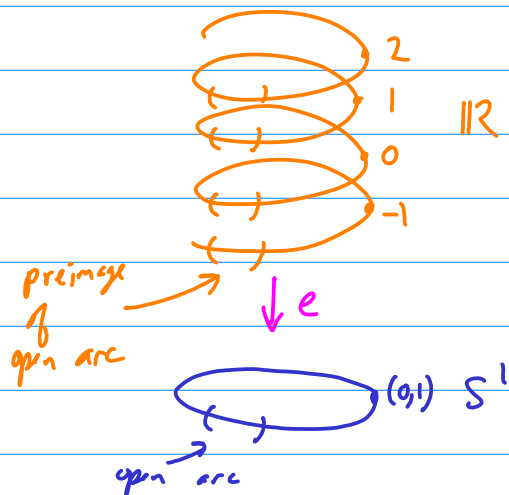 2
1
ℝ
0
-1
preimage
of
open arc
e
(0,1) S¹
open arc